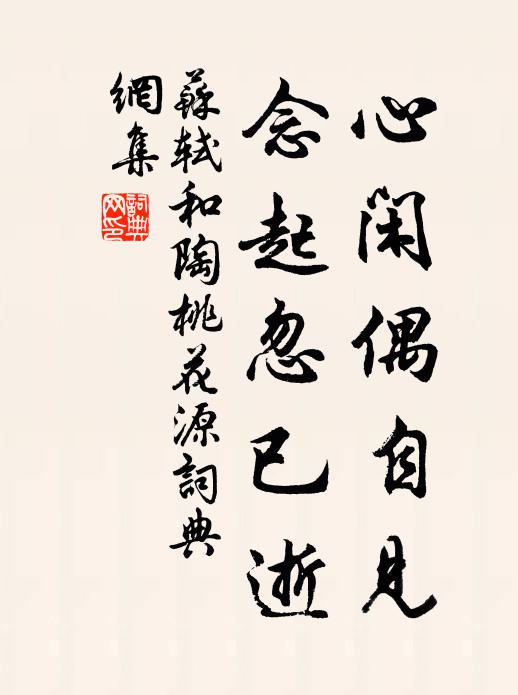 心閑偶自見
念起忽已逝
蘇軾和陶桃花源詞典
網集
詞典
网印